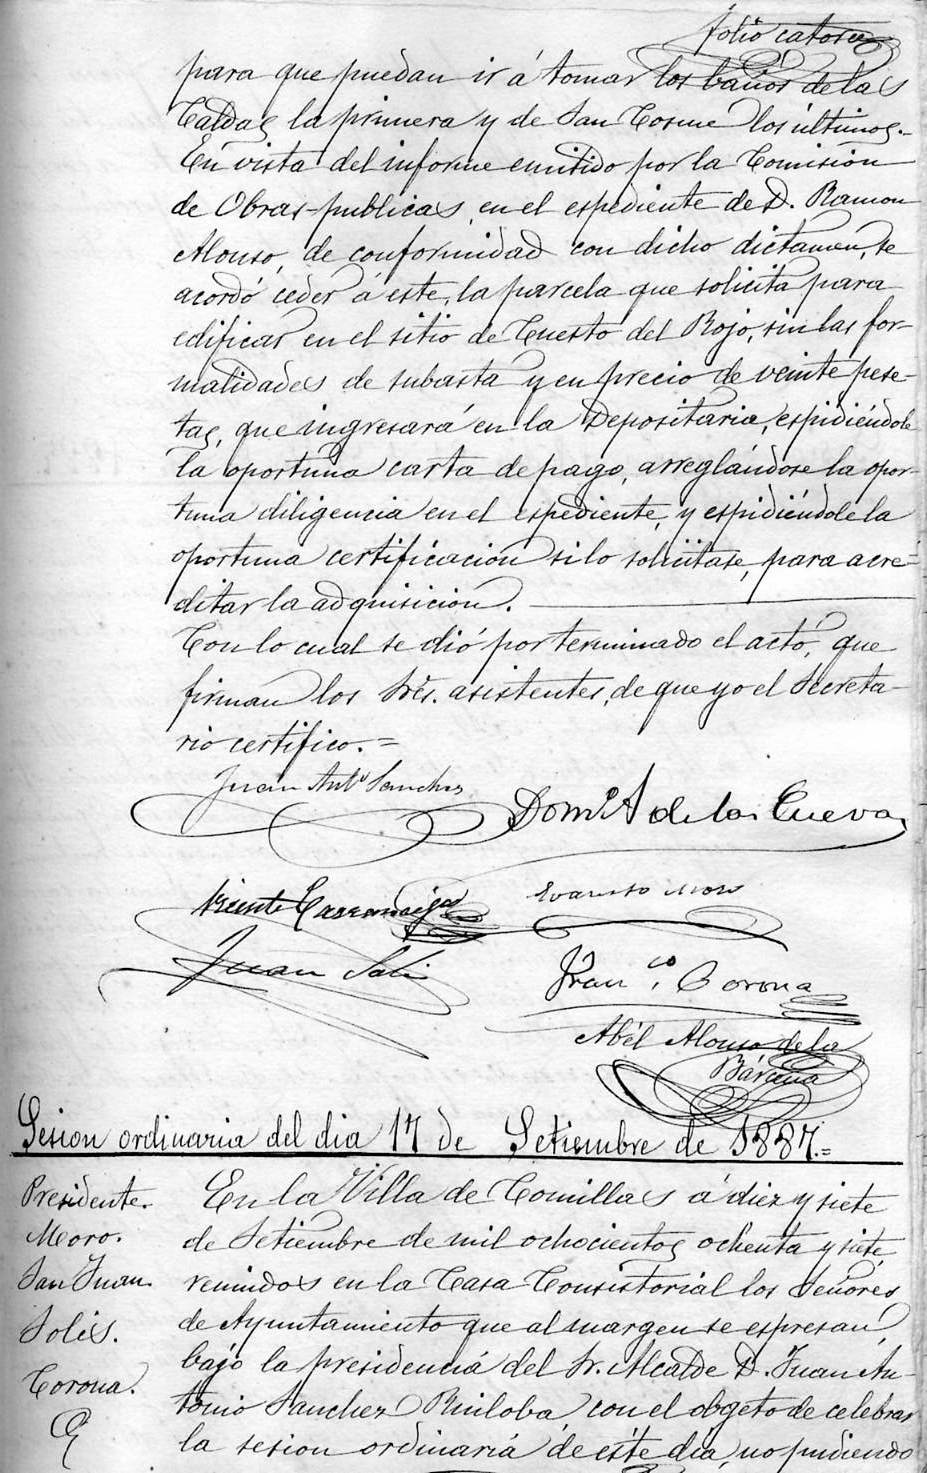 folio catorce
para que puedan ir á tomar los baños de las
Caldas la primera y de San Cosme los últimos.-
En vista del informe emitido por la Comision
de Obras publicas, en el espediente de D. Ramon
Alonso, de conformidad con dicho dictamen, se
acordó ceder á este, la parcela que solicita para
edificar en el sitio de Cuesto del Rojo, sin las for-
malidades de subasta y en precio de veinte pese-
tas, que ingresará en la Depositaria, espidiéndole
la oportuna carta de pago, arreglándose la opor-
tuna diligencia en el espediente, y espidiéndole la
oportuna certificación si lo solicitase, para acre=
ditar la adquisicion.
Con lo cual se dió por terminado el acto, que
firman los Sres. asistentes, de que yo el Secreta-
rio certifico.=
Juan Antº Sanchez
Domº A de las Cuevas
Vicente
Evaristo Moro
Juan Solis
Franco. Corona
Abél Alonso de la
Bárcena
Sesion ordinaria del dia 17 de Setiembre de 1887.=
Presidente.
Moro.
San Juan
Solis.
Corona.
En la Villa de Comillas á diez y siete
de Setiembre de mil ochocientos ochenta y siete,
reunidos en la Casa Consistorial los Señores
de Ayuntamiento que al margen se espresan,
bajo la presidencia del Sr. Alcalde D. Juan An-
tonio Sanchez Ruiloba, con el obgeto de celebrar
la sesion ordinaria de este dia, no pudiendo